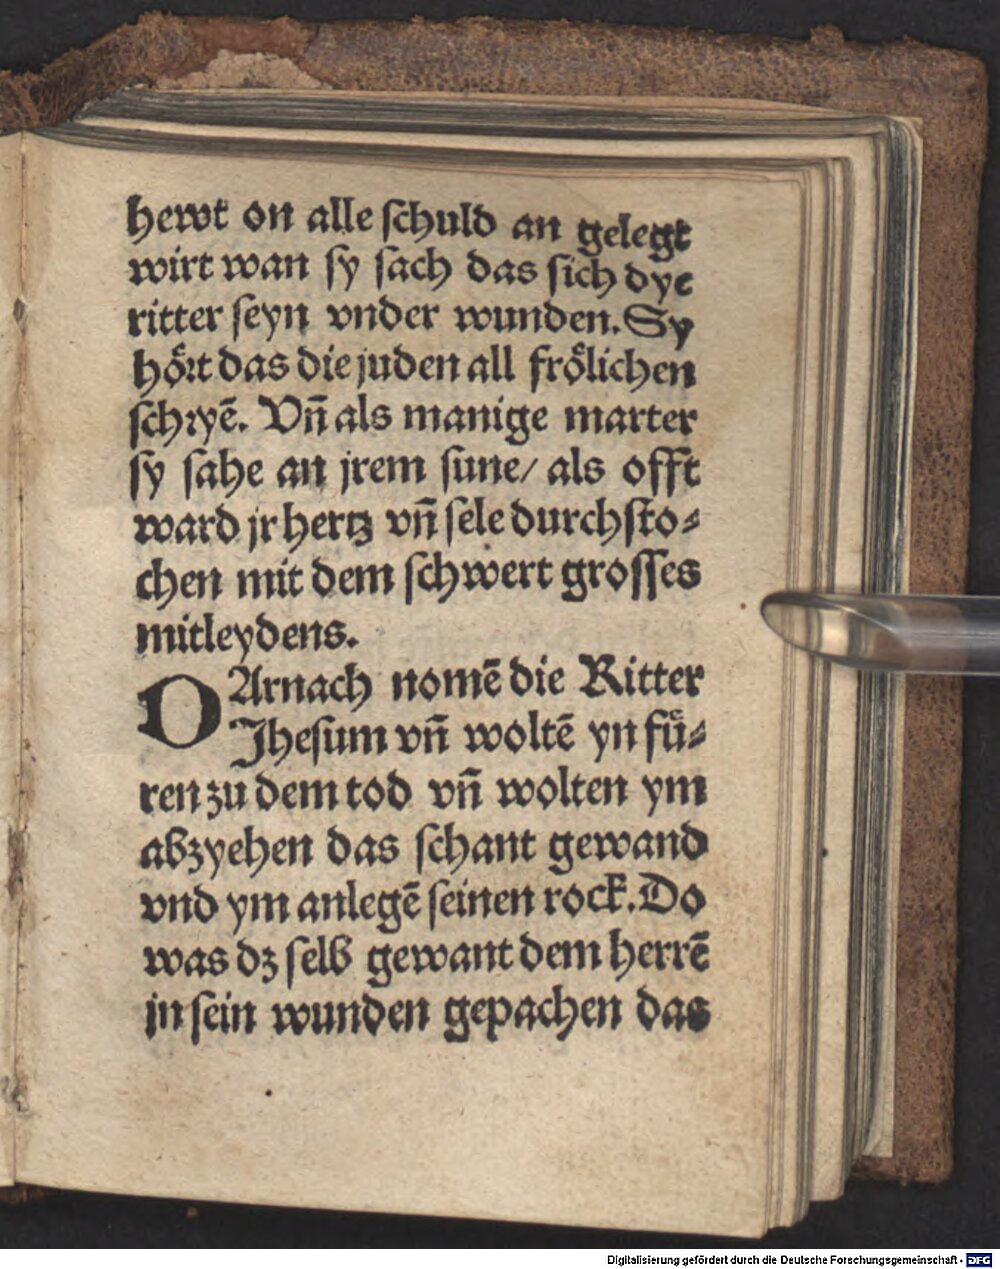 hewt on alle schuld an gelegt
wirt wan sy sach das sich dye
ritter seyn vnder wunden. Sy
hoͤrt das die juden all froͤlichen
schryē. Vn̄ als manige marter
sy sahe an jrem sune/ als offt
ward jr hertz vn̄ sele durchsto⸗
chen mit dem schwert grosses
mitleydens.
DArnach nomē die Ritter
Jhesum vn̄ woltē yn fuͤ⸗
ren zu dem tod vn̄ wolten ym
abzyehen das schant gewand
vnd ym anlegē seinen rock. Do
was dz selb gewant dem herrē
in sein wunden gepachen das
Digitalisierung gefördert durch die Deutsche Forschungsgemeinschaft - DFG